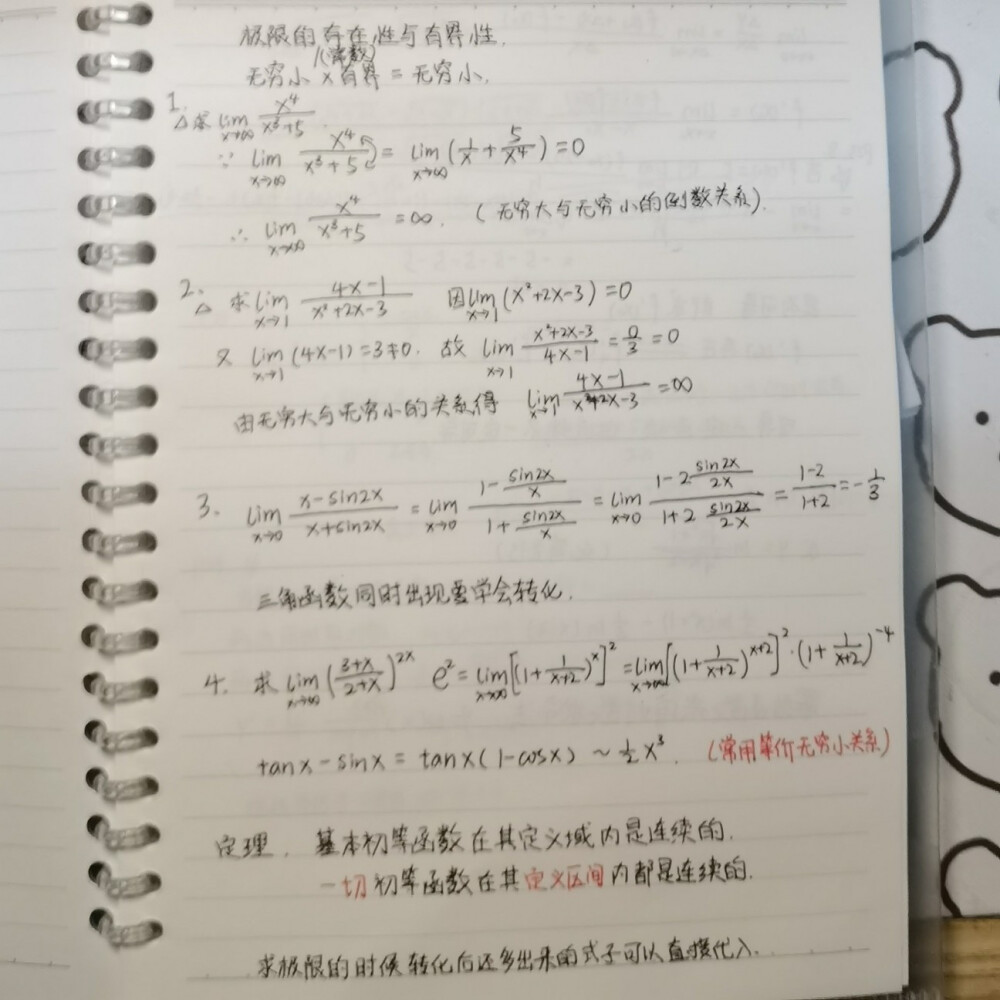 极限的存在性与有界性.
(常数)
无穷小 × 有界 = 无穷小.
1. △求 lim x→∞ x⁴/(x³+5).
∵ lim x→∞ x⁴/(x³+5) = lim x→∞ (1/x + 5/x⁴) = 0
∴ lim x→∞ x⁴/(x³+5) = ∞. (无穷大与无穷小的倒数关系).
2. △ 求 lim x→1 (4x-1)/(x²+2x-3) 因 lim x→1 (x²+2x-3) = 0
又 lim x→1 (4x-1) = 3 ≠ 0. 故 lim x→1 (x²+2x-3)/(4x-1) = 0/3 = 0
由无穷大与无穷小的关系得 lim x→1 (4x-1)/(x²+2x-3) = ∞
3. lim x→0 (x-sin2x)/(x+sin2x) = lim x→0 (1-sin2x/x)/(1+sin2x/x) = lim x→0 (1-2 sin2x/2x)/(1+2 sin2x/2x) = (1-2)/(1+2) = -1/3
三角函数同时出现要学会转化.
4. 求 lim x→∞ ((3+x)/(2+x))^2x e² = lim x→∞ [(1+1/(x+2))^x]² = lim x→∞ [(1+1/(x+2))^(x+2)]² · (1+1/(x+2))^-4
tanx - sinx = tanx(1-cosx) ~ ½x³. (常用等价无穷小关系)
定理. 基本初等函数在其定义域内是连续的.
一切初等函数在其定义区间内都是连续的.
求极限的时候转化后还多出来的式子可以直接代入.